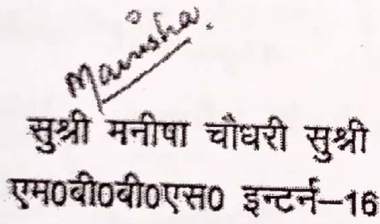 Manisha.
सुश्री मनीषा चौधरी सुश्री
एम0बी0बी0एस0 इन्टर्न–16